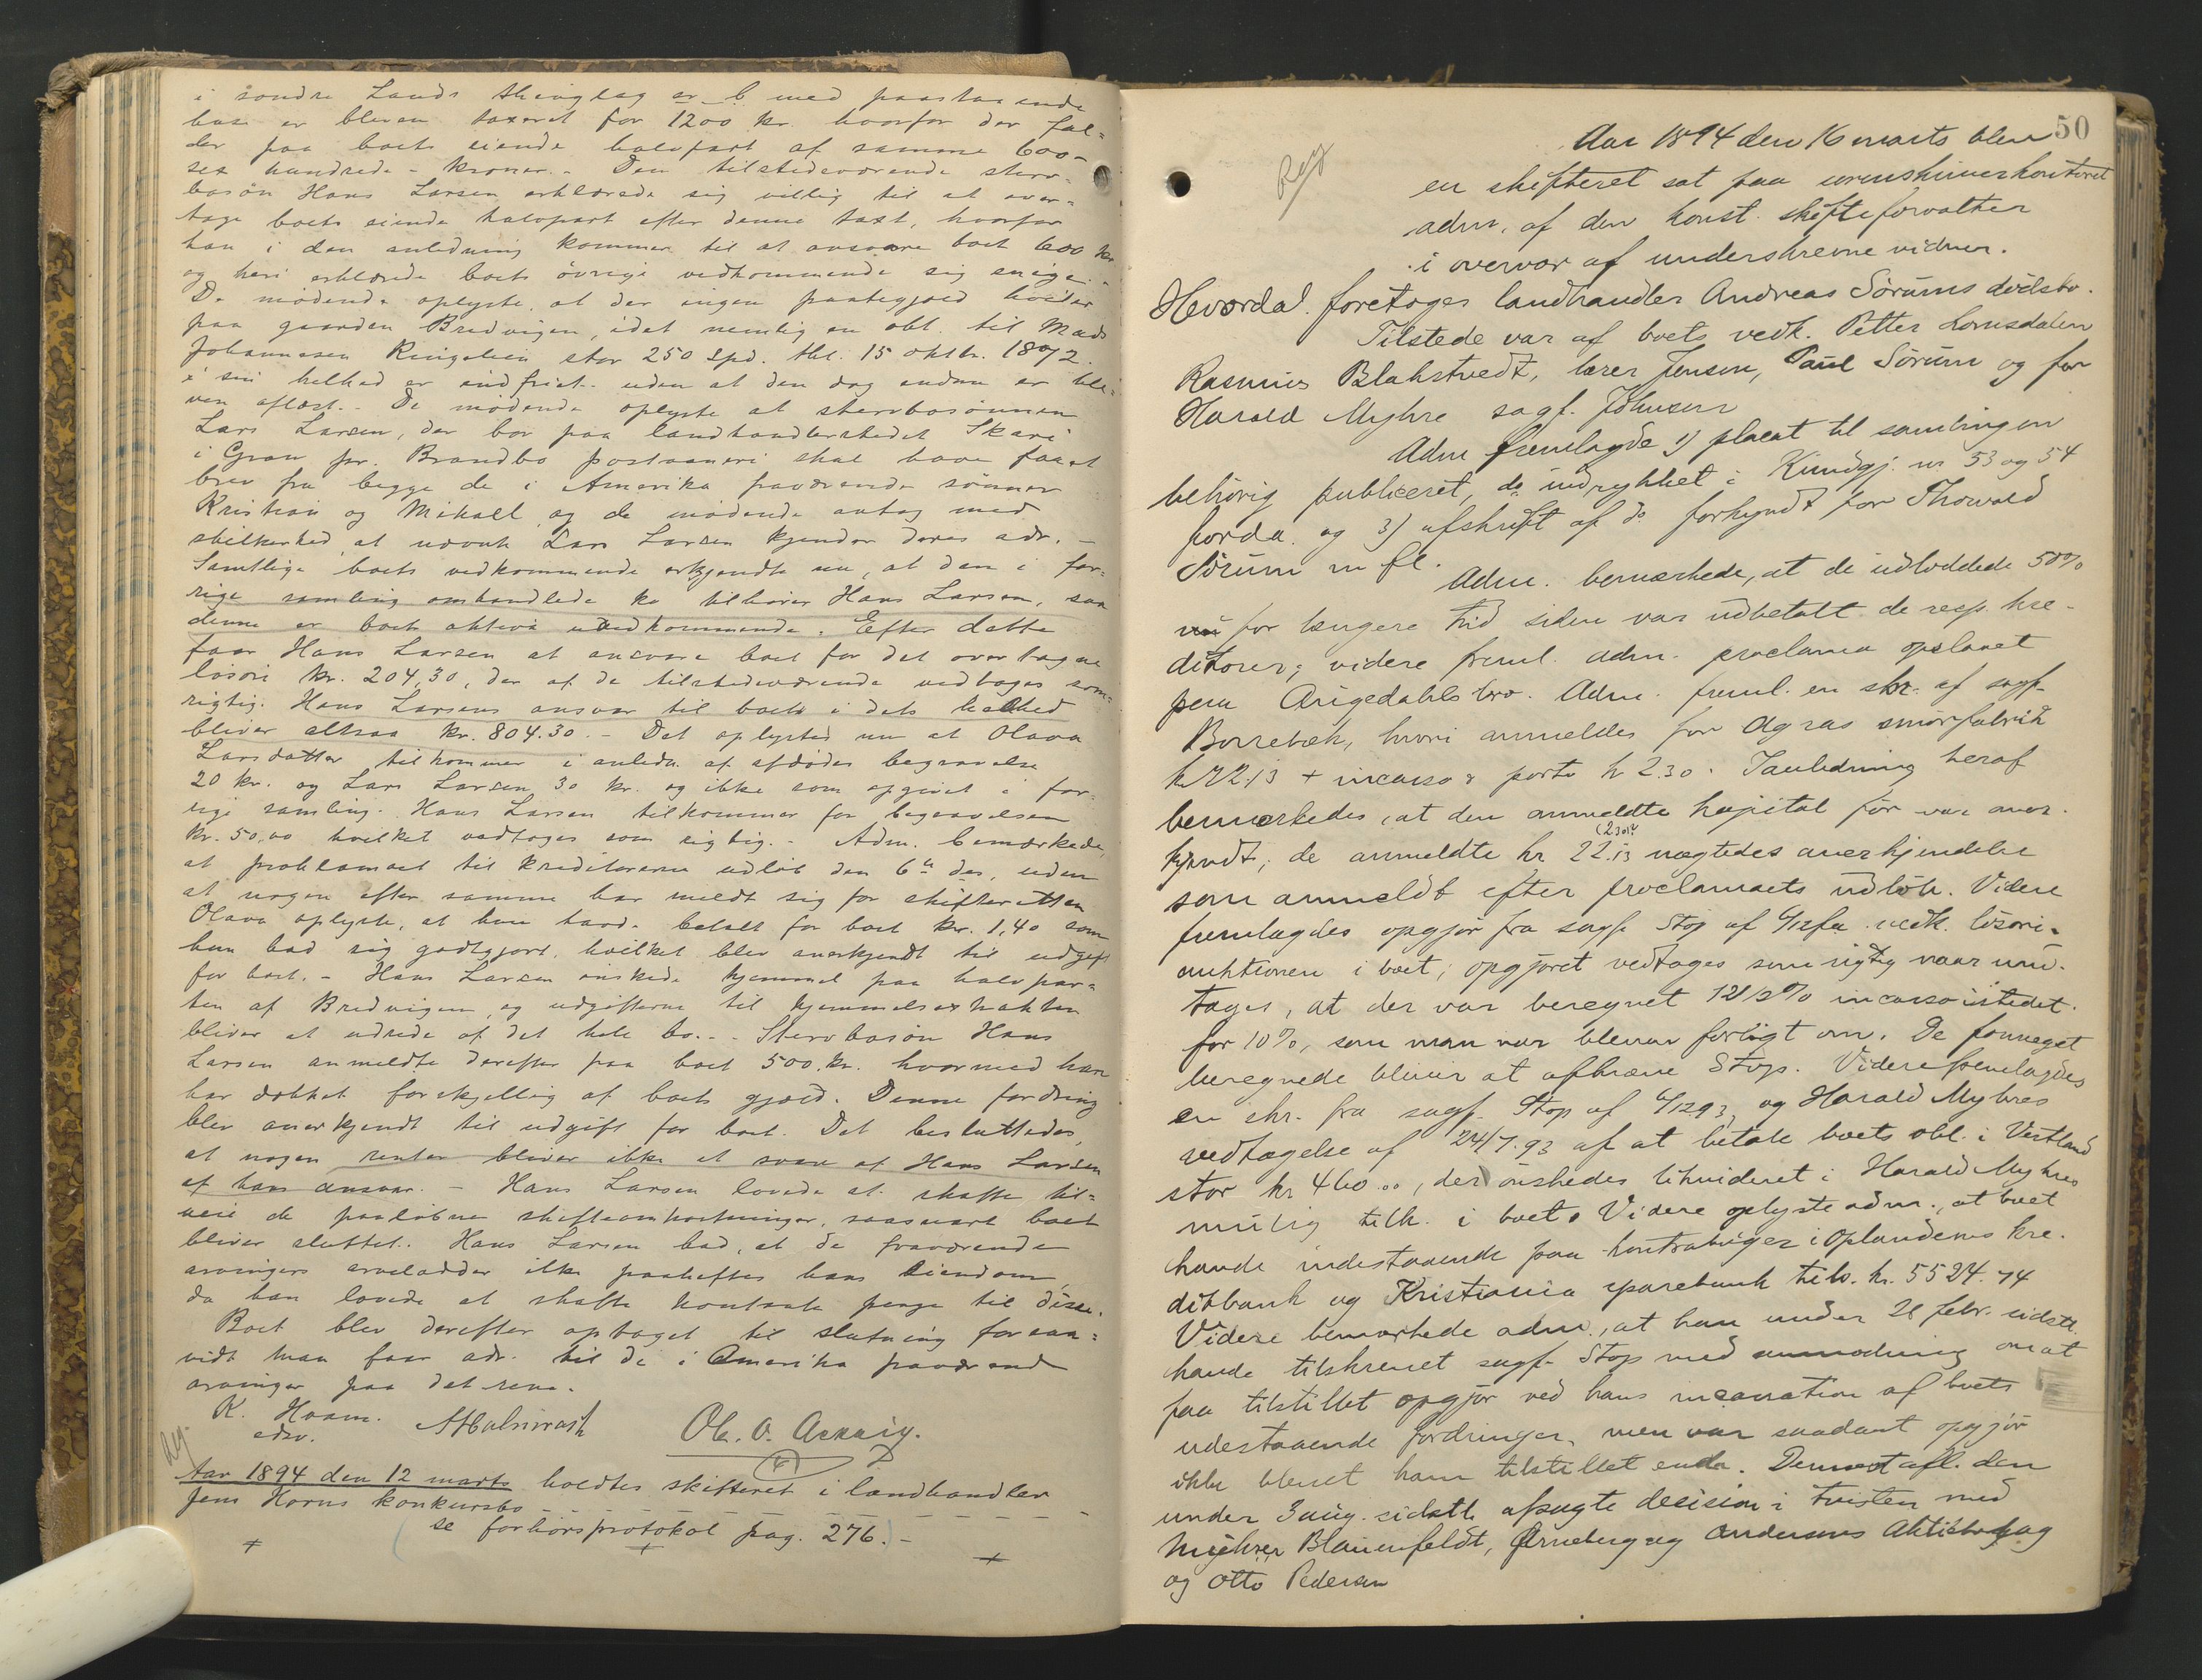 i söndre Lands thinglag er b med paastaaende
huse er bleven taxeret for 1200 kr. hvorfor der fal=
der paa boets eiende halvpart af samme 600 -
sex hundrede - kroner. - Den tilstedeværende sterv-
bosön Hans Larsen erklærede sig villig til at over=
tage boets eiende halvpart efter denne taxt, hvorfor
han i den anledning kommer til at ansvare boet 600 kr
og heri erklærede boets övrige vedkommende sig enige. -
De mödende oplyste, at der ingen pantegjæld hvider
paa gaarden Bredvigen, idet nemlig en obl. til Mads
Johannesen Ringelien stor 250 Spd. thl. 15 oktbr. 1872.
i sin helhed er indfriet uden at den dog endnu er ble=
ven aflæst. - De mödende oplyste at stervbosönnen
Lars Larsen, der bor paa landhandlerstedet Skari
i Gran pr. Brandbo postaaneri skal have faaet
brev fra begge de i Amerika fraværende sönner
Kristian og Mikael og de mödende antog med
sikkerhed, at nævnte Lars Larsen kjender deres adr. -
Samtlige boets vedkommende erkjendte nu, at den i for=
rige samling omhandlede ko tilhörer Hans Larsen, saa
denne er boets aktiva uvedkommende. Efter dette
faar Hans Larsen at ansvare boet for det overtagne
lösöre kr. 204,30, der af de tilstedeværende vedtages som
rigtig. Hans Larsens ansvar til boet i dets helhed
bliver altsaa kr. 804.30. - Det oplystes nu at Olava
Larsdatter tilkommer i anledn. af afdödes begravelse
20 kr. og Lars Larsen 30 kr. og ikke som opgivet i for-
rige samling. Hans Larsen tilkommer for begravelsen
kr. 50,00 hvilket vedtoges som rigtig. - Adm. bemærkede,
at proklamaet til kreditorerne udlöb den 6te ds, uden
at nogen efter samme har meldt sig for skifteretten
Olava oplyste, at hun havde betalt for boet kr. 1,40 som
hun bad sig godtgjort, hvilket blev anerkjendt til udgift
for boet. - Hans Larsen önskede hjemmel paa halvpar=
ten af Bredvigen, og udgifterne til hjemmelsextrakten
bliver at udrede af det hele bo. - Stervbosön Hans
Larsen anmeldte derefter paa boet 500 kr. hvormed han
har dækket forskjellig af boets gjæld. Denne fordring
blev anerkjendt til udgift for boet. Det besluttedes,
at nogen renter bliver ikke at svare af Hans Larsen
af hans ansvar. - Hans Larsen lovede at skaffe til=
veie de paalöbne skifteomkostninger, saasnart boet
bliver sluttet. Hans Larsen bad, at de fraværende
arvingers arvelodder ikke paaheftes hans eiendom,
da han lovede at skaffe kontante penge til disse.
Boet blev derefter optaget til slutning forsaa=
vidt man faar adr. til de i Amerika fraværende
arvinger paa det rene.
K. Hoam.
edsv.
Ol. O. Aasnig.
Aar 1894 den 12 marts holdtes skifteret i landhandler
Jens Horns konkursbo - - - - - - - -
(se forhörsprotokol pag. 276.) -
50
Reg
Aar 1894 den 16 marts blev
en skifteret sat paa sorenskriverkontoret
adm. af den konst. skifteforvalter
i overvær af underskrevne vidner.
Hvorda foretoges landhandler Andreas Sörums dödsbo.
Tilstede var af boets vedk. Petter Lomsdalen
Rasmus Blakstvedt, lærer Jensen, Paul Sörum og for
Harald Myhre sagf. Johnsen
Adm fremlagde 1) placat til samlingen
behörig publiceret, do indrykket i Kundgj. nr 53 og 54
forda. og 3) afskrift af do forkyndt for Thorvald
Sörum m fl.
Adm. bemærkede, at de udloddede 50%
for længere tid siden var udbetalt de resp. kre-
ditorer; videre freml. adm. proclama opslaaet
paa Arigedahls bro. Adm. freml. en skr. af sagf.
Borrebæk, hvori anmeldes for Agras smörfabrik
kr 72.13 + incasso & porto kr 2.30. I anledning heraf
bemærkedes, at den anmeldte kapital för var aner-
kjendt; de anmeldte kr 22.13 nægtedes anerkjendelse
som anmeldt efter proclamaets udlöb. Videre
fremlagdes opgjör fra sagf. Stop af 6/12 fa vedk. lösöre-
auktionen i boet; opgjöret vedtages som rigtig naar und-
tages, at der var beregnet 12 1/2 % incasso istedet
for 10%, som man var bleven forligt om. De formeget
beregnede bliver at afkræve Stop. Videre fremlagdes
en skr. fra sagf. Stop af 6/12 93, og Harald Myhres
vedtagelse af 24/7.93 af at betale boets obl. i Vestland
stor kr 460.00, der önskedes likvideret i Harald Myhres
mulig tilk. i boet. Videre oplyste adm., at boet
havde indestaaende paa kontraböger i Oplandenes kre-
ditbank og Kristiania sparebank tils. kr. 5524.74
Videre bemærkede adm., at han under 28 febr. sidstl.
havde tilskrevet sagf. Stop med anmodning om at
faa tilstillet opgjör ved hans incassation af boets
udestaaende fordringer, men var saadant opgjör
ikke blevet ham tilstillet endn. Dernæst afl. den
under 3 aug. sidstl. afsagte decision i tvisten med
Myhrer Blauenfeldt, Örneberg og Andersens Aktiebolag
og Otto Pedersen